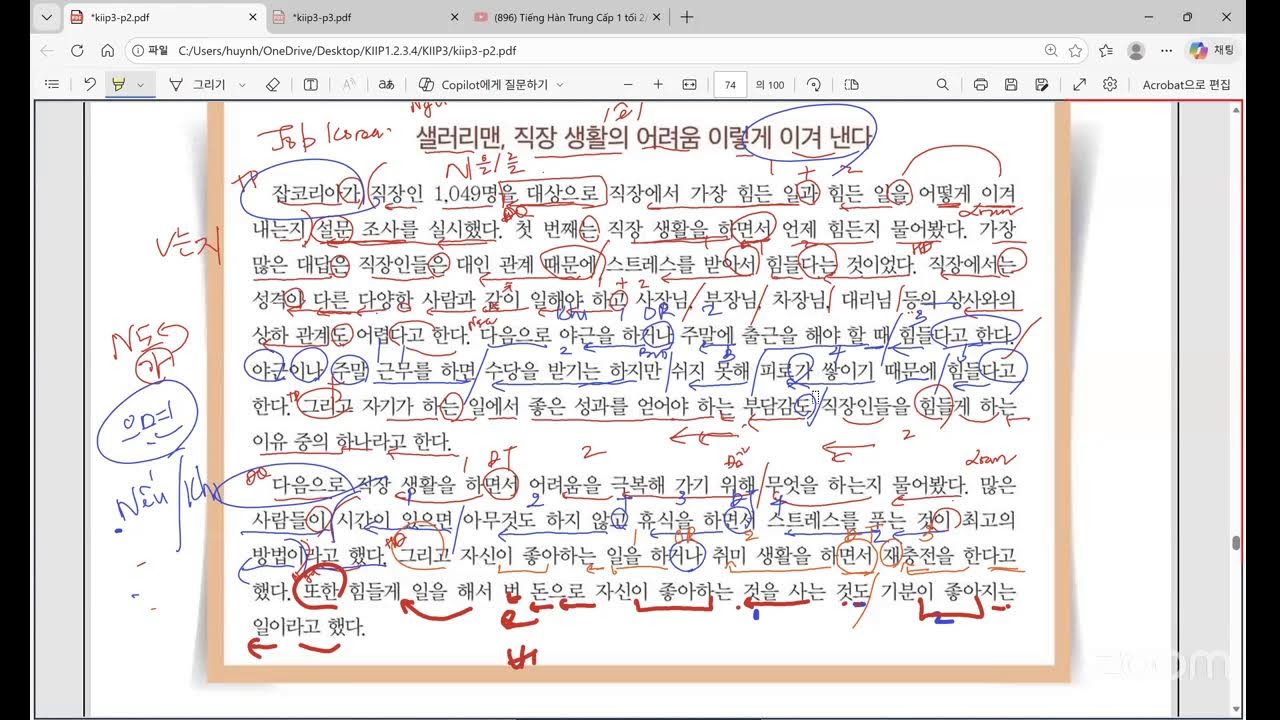 *kiip3-p2.pdf
*kiip3-p3.pdf
(896) Tiếng Hàn Trung Cấp 1 tối 2/
파일 C:/Users/huynh/OneDrive/Desktop/KIIP1.2.3.4/KIIP3/kiip3-p2.pdf
채팅
그리기
Copilot에게 질문하기
74 의 100
Acrobat으로 편집
Job Korea.
샐러리맨, 직장 생활의 어려움 이렇게 이겨 낸다
N을/를
잡코리아가 직장인 1,049명을 대상으로 직장에서 가장 힘든 일과 힘든 일을 어떻게 이겨
V는지
내는지 설문 조사를 실시했다. 첫 번째는 직장 생활을 하면서 언제 힘든지 물어봤다. 가장
많은 대답은 직장인들은 대인 관계 때문에 스트레스를 받아서 힘들다는 것이었다. 직장에서는
성격이 다른 다양한 사람과 같이 일해야 하고 사장님, 부장님, 차장님, 대리님 등의 상사와의
N도
상하 관계도 어렵다고 한다. 다음으로 야근을 하거나 주말에 출근을 해야 할 때 힘들다고 한다.
야근이나 주말 근무를 하면 수당을 받기는 하지만 쉬지 못해 피로가 쌓이기 때문에 힘들다고
으면
한다. 그리고 자기가 하는 일에서 좋은 성과를 얻어야 하는 부담감도 직장인들을 힘들게 하는
이유 중의 하나라고 한다.
Nếu/Khi
다음으로 직장 생활을 하면서 어려움을 극복해 가기 위해 무엇을 하는지 물어봤다. 많은
사람들이 시간이 있으면 아무것도 하지 않고 휴식을 하면서 스트레스를 푸는 것이 최고의
방법이라고 했다. 그리고 자신이 좋아하는 일을 하거나 취미 생활을 하면서 재충전을 한다고
했다. 또한 힘들게 일을 해서 번 돈으로 자신이 좋아하는 것을 사는 것도 기분이 좋아지는
일이라고 했다.
zoom